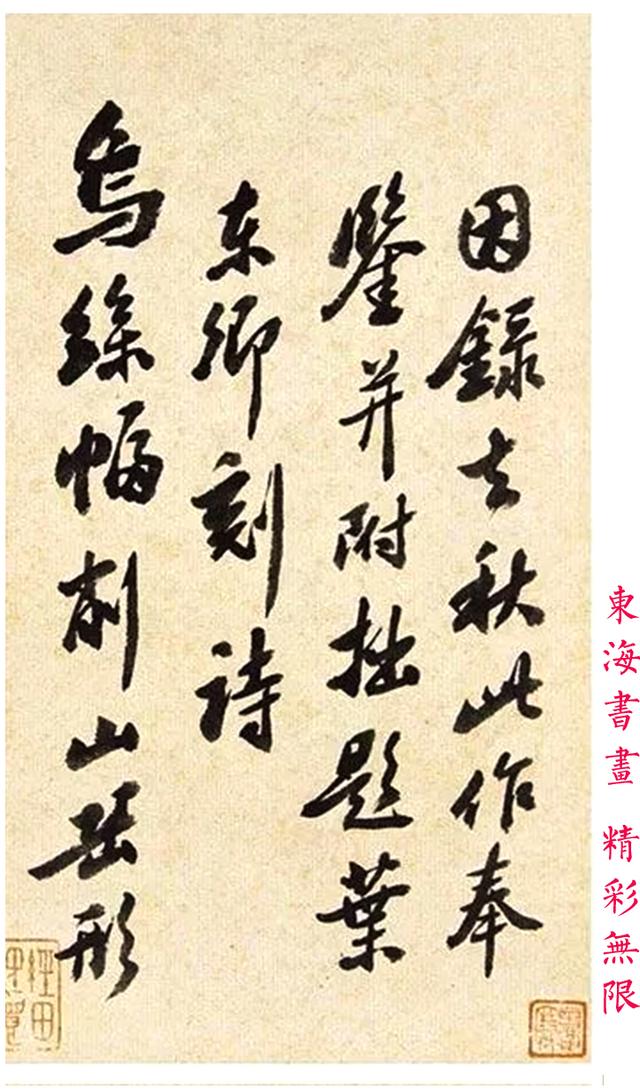 因錄去秋此作奉
鑒并附拙題葉
東卿刻詩
烏絲幅削山岳形
東海書畫 精彩無限